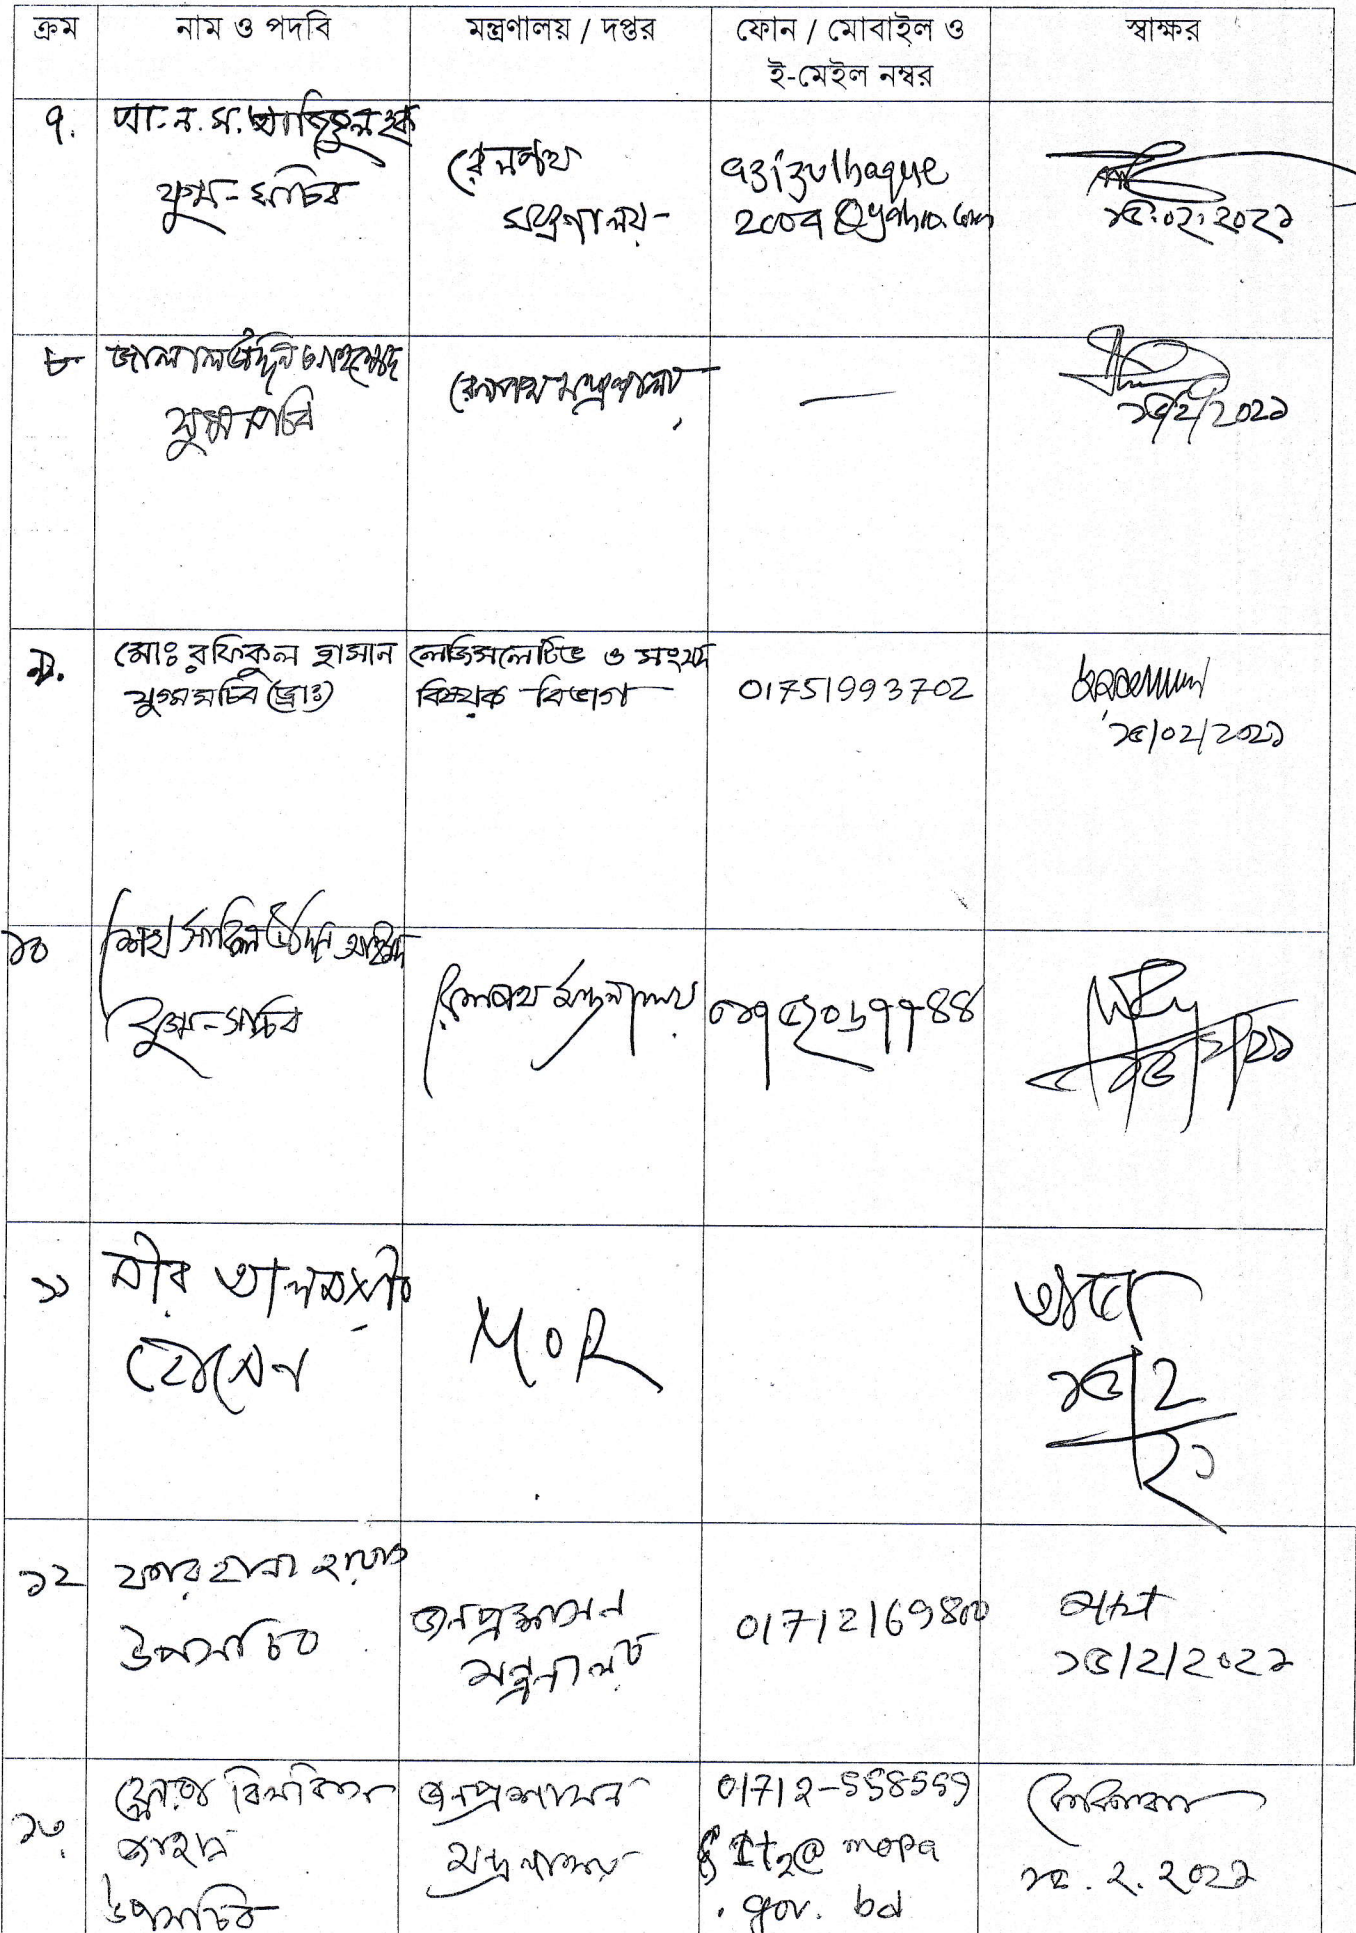 ক্রম
নাম ও পদবি
মন্ত্রণালয় / দপ্তর
ফোন / মোবাইল ও
ই-মেইল নম্বর
স্বাক্ষর
৭.
আ.ন.ম. আজিজুল হক
যুগ্ম-সচিব
রেলপথ
মন্ত্রণালয়
azizulhaque
2009@yahoo.com
১৫.০২.২০২১
৮
জালাল উদ্দিন আহম্মেদ
যুগ্মসচিব
রেলপথ মন্ত্রণালয়
১৫/২/২০২১
৯.
মোঃ রফিকুল হাসান
যুগ্মসচিব (ড্রাঃ)
লেজিসলেটিভ ও সংসদ
বিষয়ক বিভাগ
01751993702
১৫/০২/২০২১
১০
উদ্দিন আহমেদ
যুগ্ম-সচিব
রেলপথ মন্ত্রণালয়
১১
মীর আলমগীর
হোসেন
MOR
১৫/২
২১
১২
ফারহানা হায়াত
উপসচিব
জনপ্রশাসন
মন্ত্রণালয়
01712169800
১৫/২/২০২১
১৩
জাহান
উপসচিব
জনপ্রশাসন
মন্ত্রণালয়
01712-558559
@mopa
.gov.bd
১৫.২.২০২১